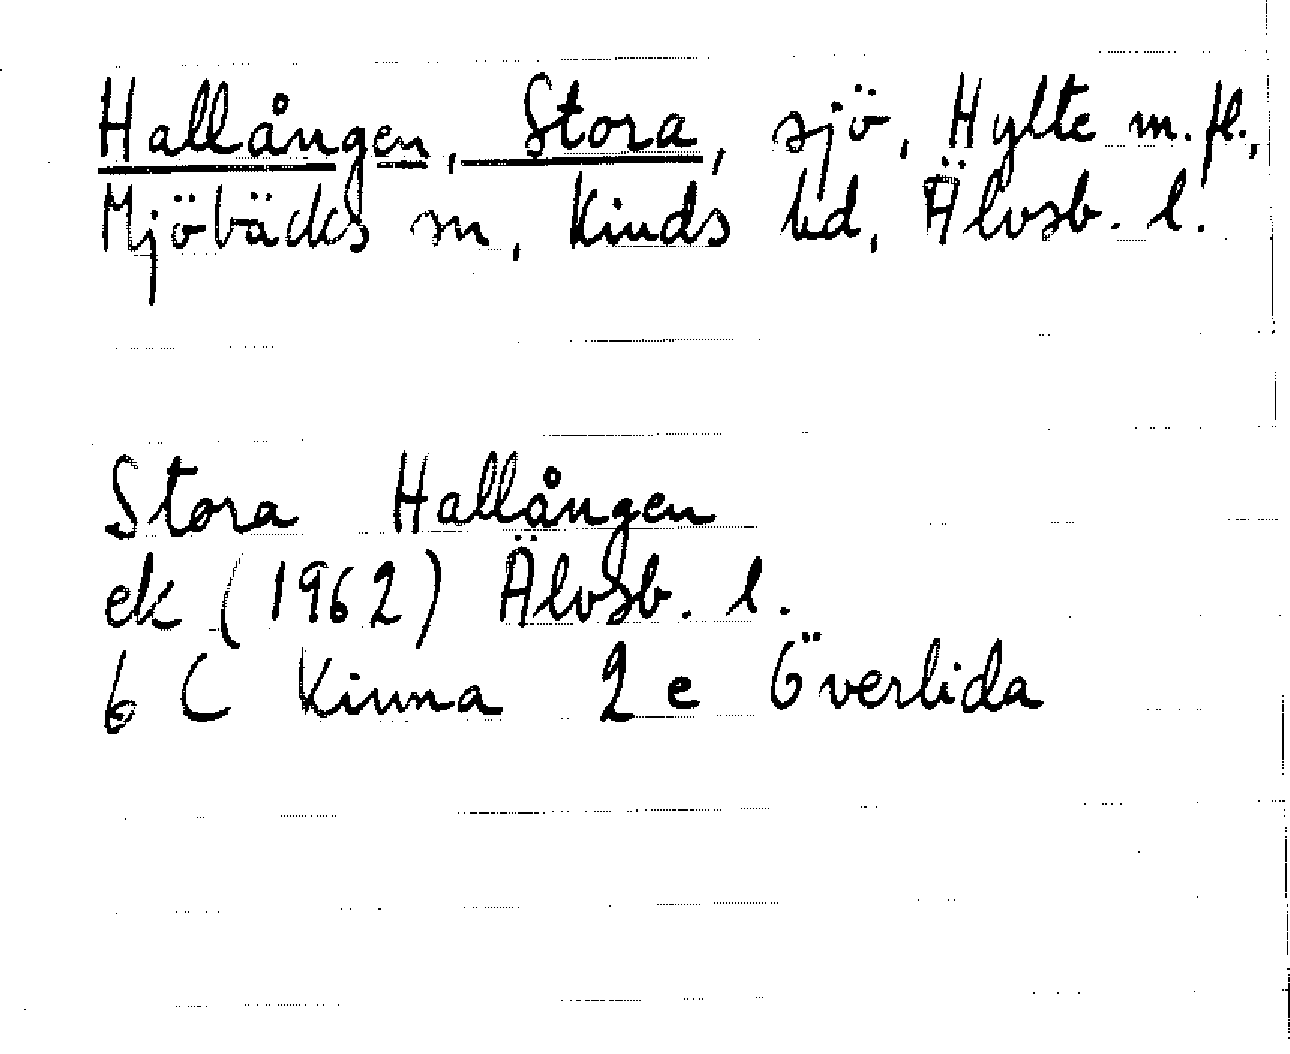 Hallången, Stora, sjö, Hylte m.fl.,
Mjöbäcks sn, Kinds hd, Älvsb. l.
Stora Hallången
ek (1962) Älvsb. l.
6 C Kinna 2 e Överlida